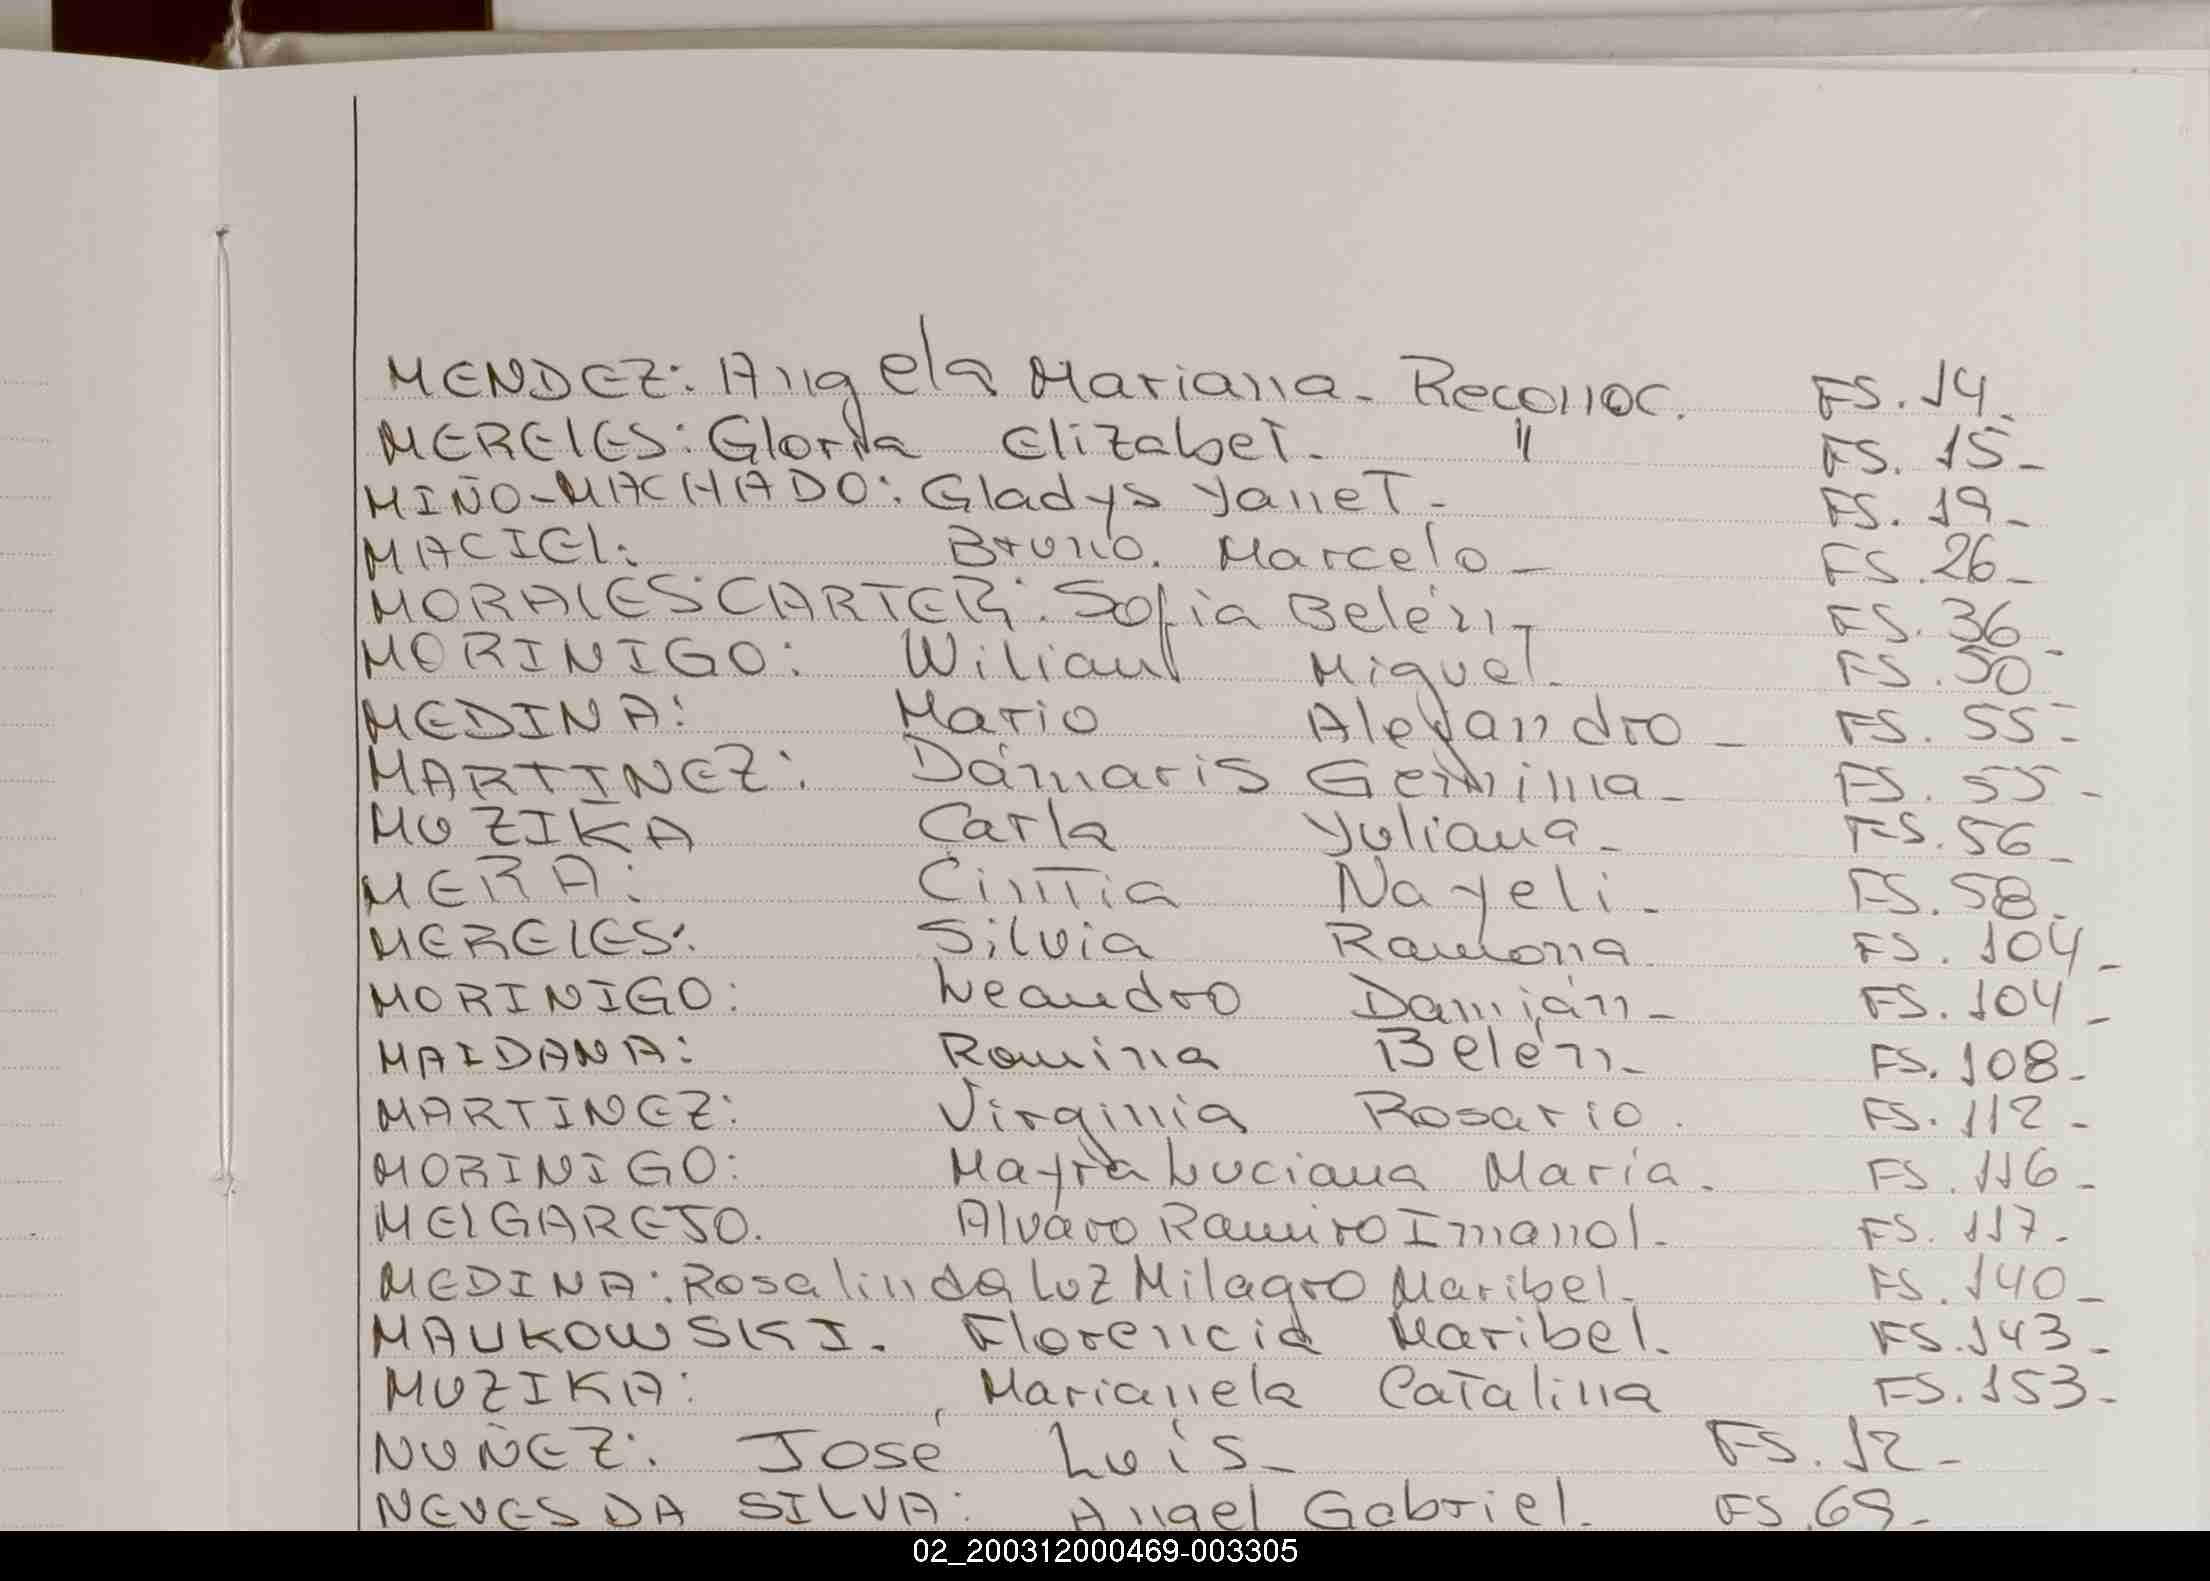 MENDEZ: Angela Mariana - Reconoc. FS. 14.
MERELES: Gloria Elizabet. " FS. 15-
MIÑO-MACHADO: Gladys Yanet. FS. 19-
MACIEL: Bruno. Marcelo - FS. 26-
MORALES CARTER: Sofia Belén - FS. 36-
MORINIGO: Wilian Miguel. FS. 50
MEDINA: Mario Alejandro - FS. 55-
MARTINEZ: Dámaris Gemima - FS. 55-
MUZIKA Carla Yuliana - FS. 56-
MERA: Cintia Nayeli - FS. 58.
MERELES: Silvia Ramona. FS. 104-
MORINIGO: Leandro Damián - FS. 104-
MAIDANA: Romina Belén - FS. 108-
MARTINEZ: Virginia Rosario. FS. 112-
MORINIGO: Mayra Luciana María. FS. 116-
MELGAREJO. Alvaro Ramiro Imanol. FS. 117.
MEDINA: Rosalinda Luz Milagro Maribel. FS. 140-
MAUKOWSKI. Florencia Maribel. FS. 143-
MUZIKA: Marianela Catalina FS. 153-
NUÑEZ: José Luis - FS. 12-
NEVES DA SILVA: Angel Gabriel. FS. 69-
02_200312000469-003305